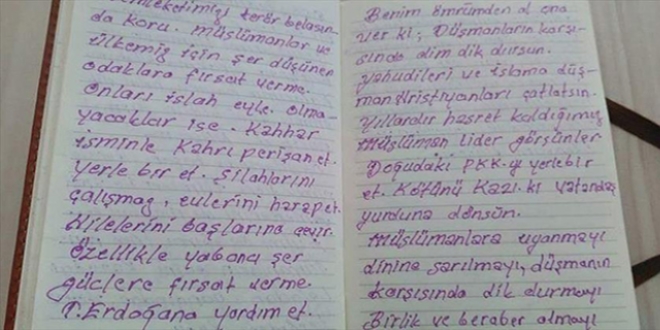 memleketimizi terör belasın-
da koru. müslümanlar ve
ülkemiz için şer düşünen
odaklara fırsat verme.
onları islah eyle. olma-
yacaklar ise. Kahhar
isminle kahrı perişan et.
yerle bir et. silahlarını
çalışmaz, evlerini harap et.
Hilelerini başlarına çevir.
özellikle yabancı şer
güçlere fırsat verme.
T. Erdoğana yardım et.
Benim ömrümden al ona
ver ki, Düşmanların karşı-
sında dim dik dursun.
yahudileri ve islama düş-
man Hristiyanları çatlatsın.
yıllardır hasret kaldığımız
müslüman lider görsünler
Doğudaki PKK-yı yerlebir
et. Kökünü Kazı. ki vatandaş
yurduna dönsün.
müslümanlara uyanmayı
dinine sarılmayı, düşmanın
karşısında dik durmayı
Birlik ve beraber olmayı